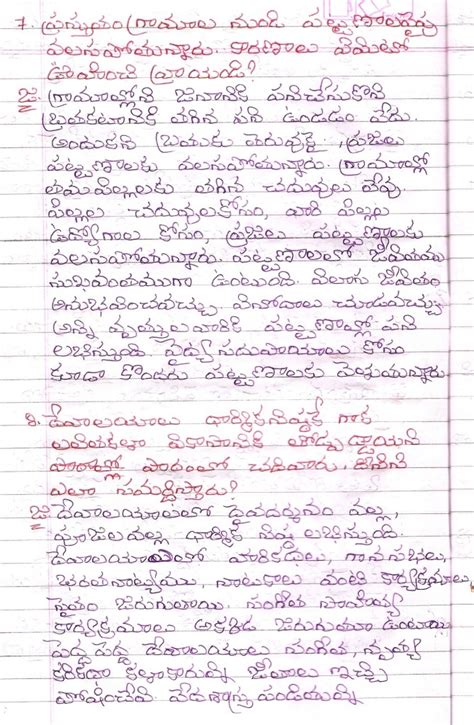 7. ప్రస్తుతం గ్రామాల నుండి పట్టణాలవైపు
వలసపోతున్నారు. కారణాలు ఏమిటో
ఊహించి వ్రాయండి?
జ. గ్రామాల్లోని జనానికి పనిచేసుకొని
బ్రతకటానికి తగిన పని ఉండడం లేదు.
అందుకని బ్రతుకు తెరువుకై, ప్రజలు
పట్టణాలకు వలసపోతున్నారు. గ్రామాల్లో
తమపిల్లలకు తగిన చదువులు లేవు.
పిల్లల చదువులకోసం, వారి పిల్లల
ఉద్యోగాల కోసం, ప్రజలు పట్టణాలకు
వలసపోతున్నారు. పట్టణాలలో జీవితము
సుఖవంతముగా ఉంటుంది. విలాస జీవితం
అనుభవించవచ్చు. వినోదాలు చూడవచ్చు
అన్ని వృత్తులవారికి పట్టణాల్లో పని
లభిస్తుంది. వైద్య సదుపాయాలు కోసం
కూడా కొందరు పట్టణాలకు వెళుతున్నారు.
8. దేవాలయాలు ధార్మికనిష్ఠకే గాక
లలితకళా వికాసానికి తోడ్పడ్డాయని
పాఠాల్లో పాఠంలో చదివారు. దీనిని
ఎలా సమర్థిస్తారు?
జ. దేవాలయాలలో దైవదర్శనం వల్ల,
పూజలవల్ల ధార్మిక నిష్ఠ లభిస్తుంది.
దేవాలయాలలో హరికథలు, గానసభలు,
భరతనాట్యము, నాటకాలు వంటి కార్యక్రమాలు
నృత్యం జరుగుతాయి. సంగీత సాహిత్య
కార్యక్రమాలు అక్కడ జరుగుతూ ఉంటాయి
పెద్దపెద్ద దేవాలయాలు సంగీత, నృత్య
కళాకారుల్ని జీతాలు ఇచ్చి
పోషించేవి. వేదశాస్త్ర పండితుల్ని